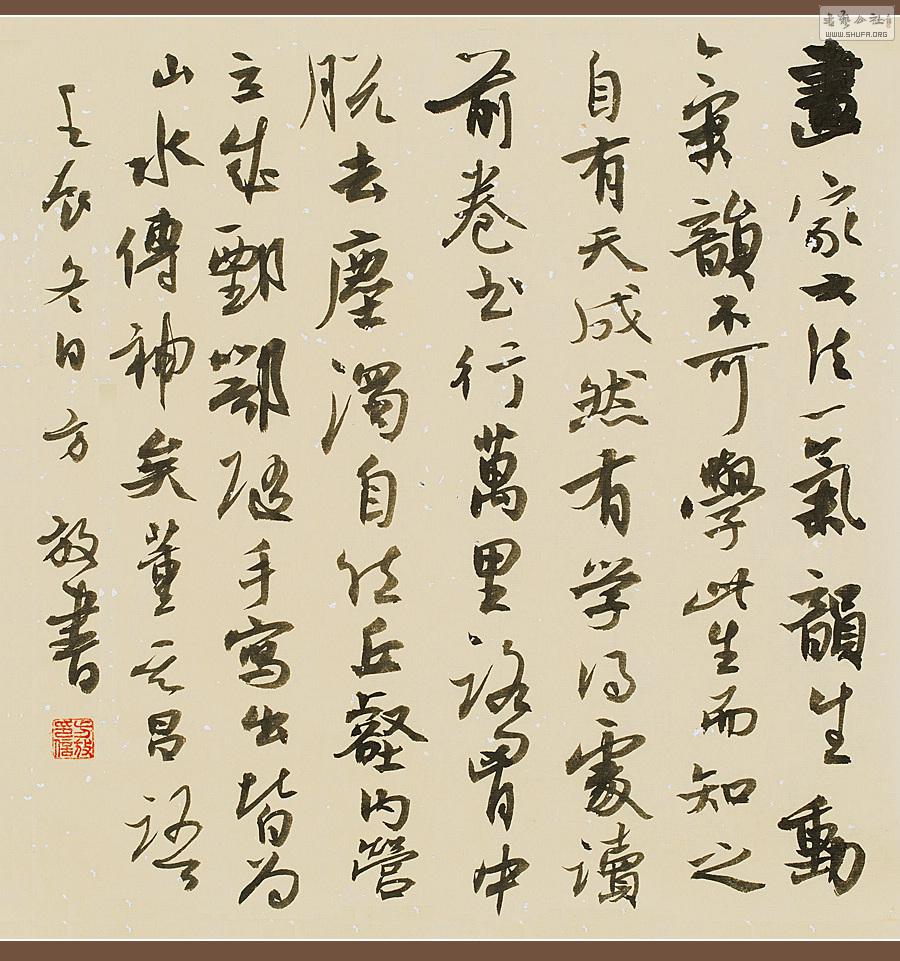 畫家六法一氣韻生動
氣韻不可學此生而知之
自有天成然有学得處讀
萬卷书行萬里路胷中
脱去塵濁自然丘壑内營
立成鄄鄂随手寫出皆为
山水傳神矣董其昌語
壬辰冬日方放書
方放印信
书艺公社
WWW.SHUFA.ORG